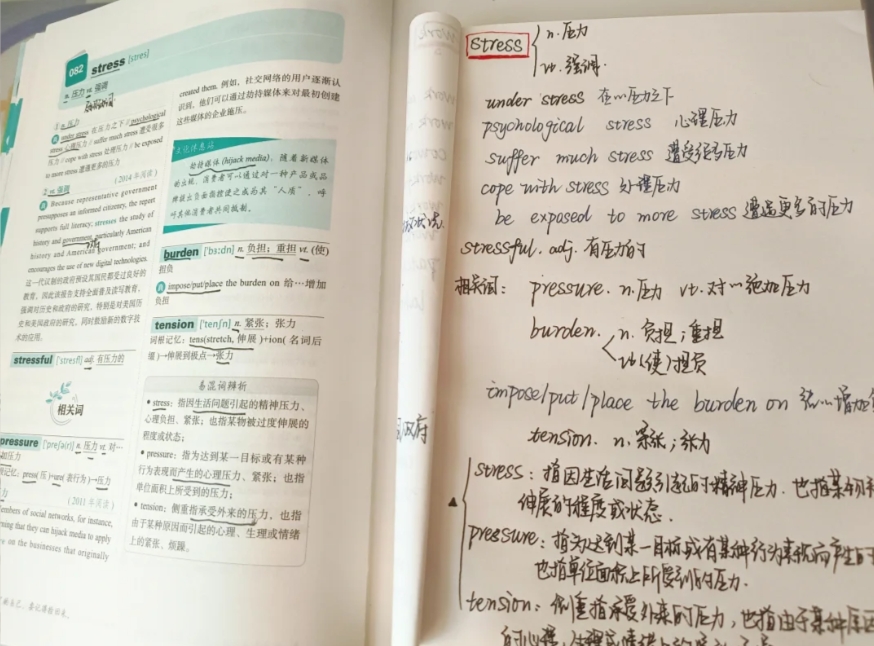 082 stress [stres]
n. 压力 vt. 强调
① n. 压力
under stress 在压力之下 // psychological
stress 心理压力 // suffer much stress 遭受很多
压力 // cope with stress 处理压力 // be exposed
to more stress 遭遇更多的压力
(2014年阅读)
② vt. 强调
Because representative government
presupposes an informed citizenry, the report
supports full literacy; stresses the study of
history and government, particularly American
history and American government; and
encourages the use of new digital technologies.
这一代议制的政府预设其国民都受过良好的
教育,因此该报告支持全面普及读写教育,
强调对历史和政府的研究,特别是对美国历
史和美国政府的研究,同时鼓励新的数字技
术的应用。
stressful ['stresfl] adj. 有压力的
相关词
pressure ['preʃə(r)] n. 压力 vt. 对…
加压力
记忆:press(压)+ure(表行为)→压力
力
(2011年阅读)
members of social networks, for instance,
rning that they can hijack media to apply
re on the businesses that originally
created them. 例如,社交网络的用户逐渐认
识到,他们可以通过劫持媒体来对最初创建
这些媒体的企业施压。
文化休息站
劫持媒体(hijack media),随着新媒体
的出现,消费者可以通过对一种产品或品
牌做出负面捆绑使之成为其“人质”,呼
吁其他消费者共同抵制。
burden ['bɜːdn] n. 负担;重担 vt. (使)
担负
impose/put/place the burden on 给…增加
负担
tension ['tenʃn] n. 紧张;张力
词根记忆:tens(stretch, 伸展)+ion(名词后
缀)→伸展到极点→张力
易混词辨析
• stress: 指因生活问题引起的精神压力、
心理负担、紧张;也指某物被过度伸展的
程度或状态;
• pressure: 指为达到某一目标或有某种
行为表现而产生的心理压力、紧张;也指
单位面积上所受到的压力;
• tension: 侧重指承受外来的压力,也指
由于某种原因而引起的心理、生理或情绪
上的紧张、烦躁。
stress n. 压力
vt. 强调.
under stress 在…压力之下
psychological stress 心理压力
suffer much stress 遭受很多压力
cope with stress 处理压力
be exposed to more stress 遭遇更多的压力
stressful. adj. 有压力的
相关词: pressure. n. 压力 vt. 对…施加压力
burden. n. 负担;重担
vt. (使)担负
impose/put/place the burden on 给…增加负
tension. n. 紧张;张力
stress: 指因生活问题引起的精神压力. 也指某物
伸展的程度或状态.
pressure: 指为达到某一目标或有某种行为表现而产生的
也指单位面积上所受到的压力.
tension: 侧重指承受外来的压力,也指由于某种原因
的心理,生理或情绪上的